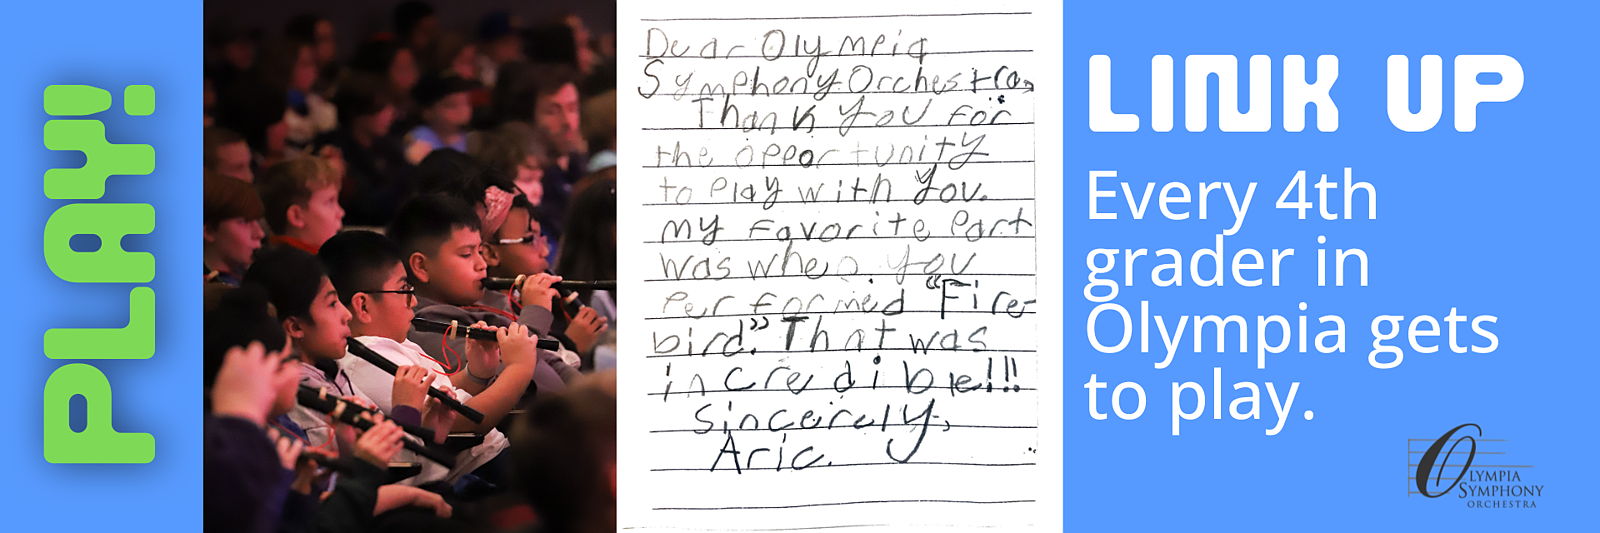 PLAY!
Dear Olympia
Symphony Orchestra,
Thank you for
the opportunity
to play with you.
my favorite part
was when you
performed "Fire-
bird." That was
incredible!!!
Sincerely,
Aric.
LINK UP
Every 4th
grader in
Olympia gets
to play.
OLYMPIA
SYMPHONY
ORCHESTRA